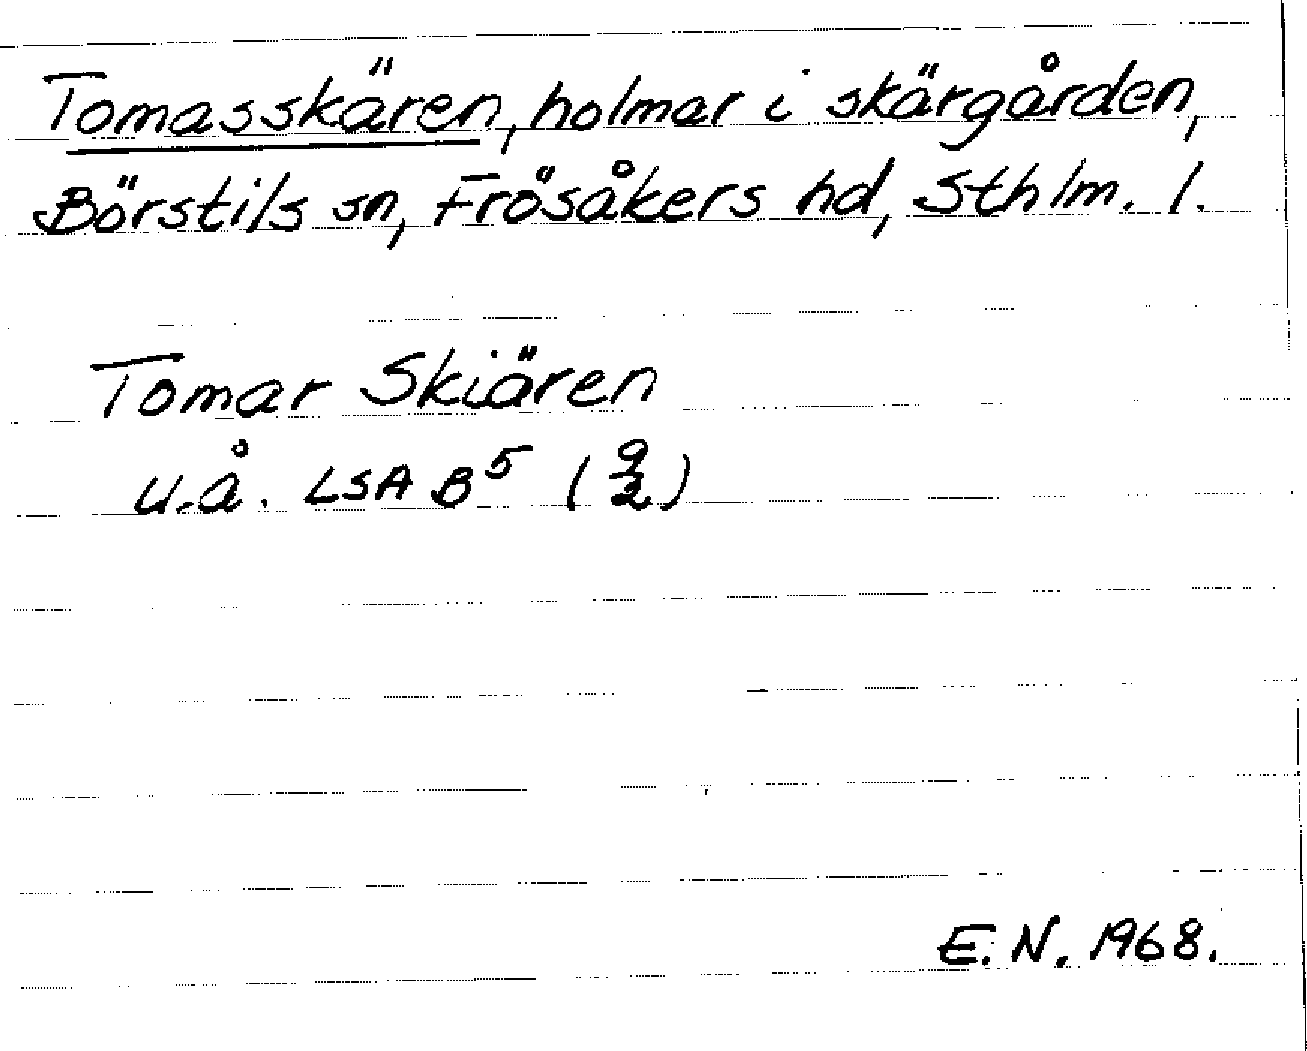 Tomasskären, holmar i skärgården,
Börstils sn, Frösåkers hd, Sthlm. l.
Tomar Skiären
u.å. LSA B⁵ (9/2)
E.N. 1968.